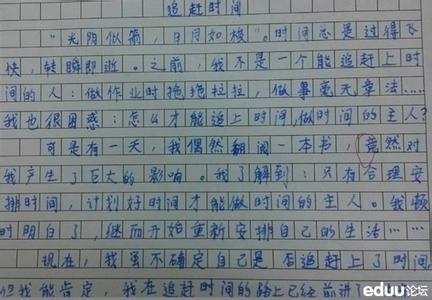 追赶时间
“光阴似箭，日月如梭。”时间总是过得飞
快，转瞬即逝。之前，我不是一个能追赶上时
间的人：做作业时拖拖拉拉，做事毫无章法……
我也很困惑：怎么才能追上时间，做时间的主人？
可是有一天，我偶然翻阅一本书，竟然对
我产生了巨大的影响。我了解到：只有合理安
排时间，计划好时间才能做时间的主人。我顿
时明白了，继而开始重新安排自己的生活……
现在，我虽不确定自己是否追赶上了时间，
但我能肯定，我在追赶时间的路上已经前进了
eduu论坛